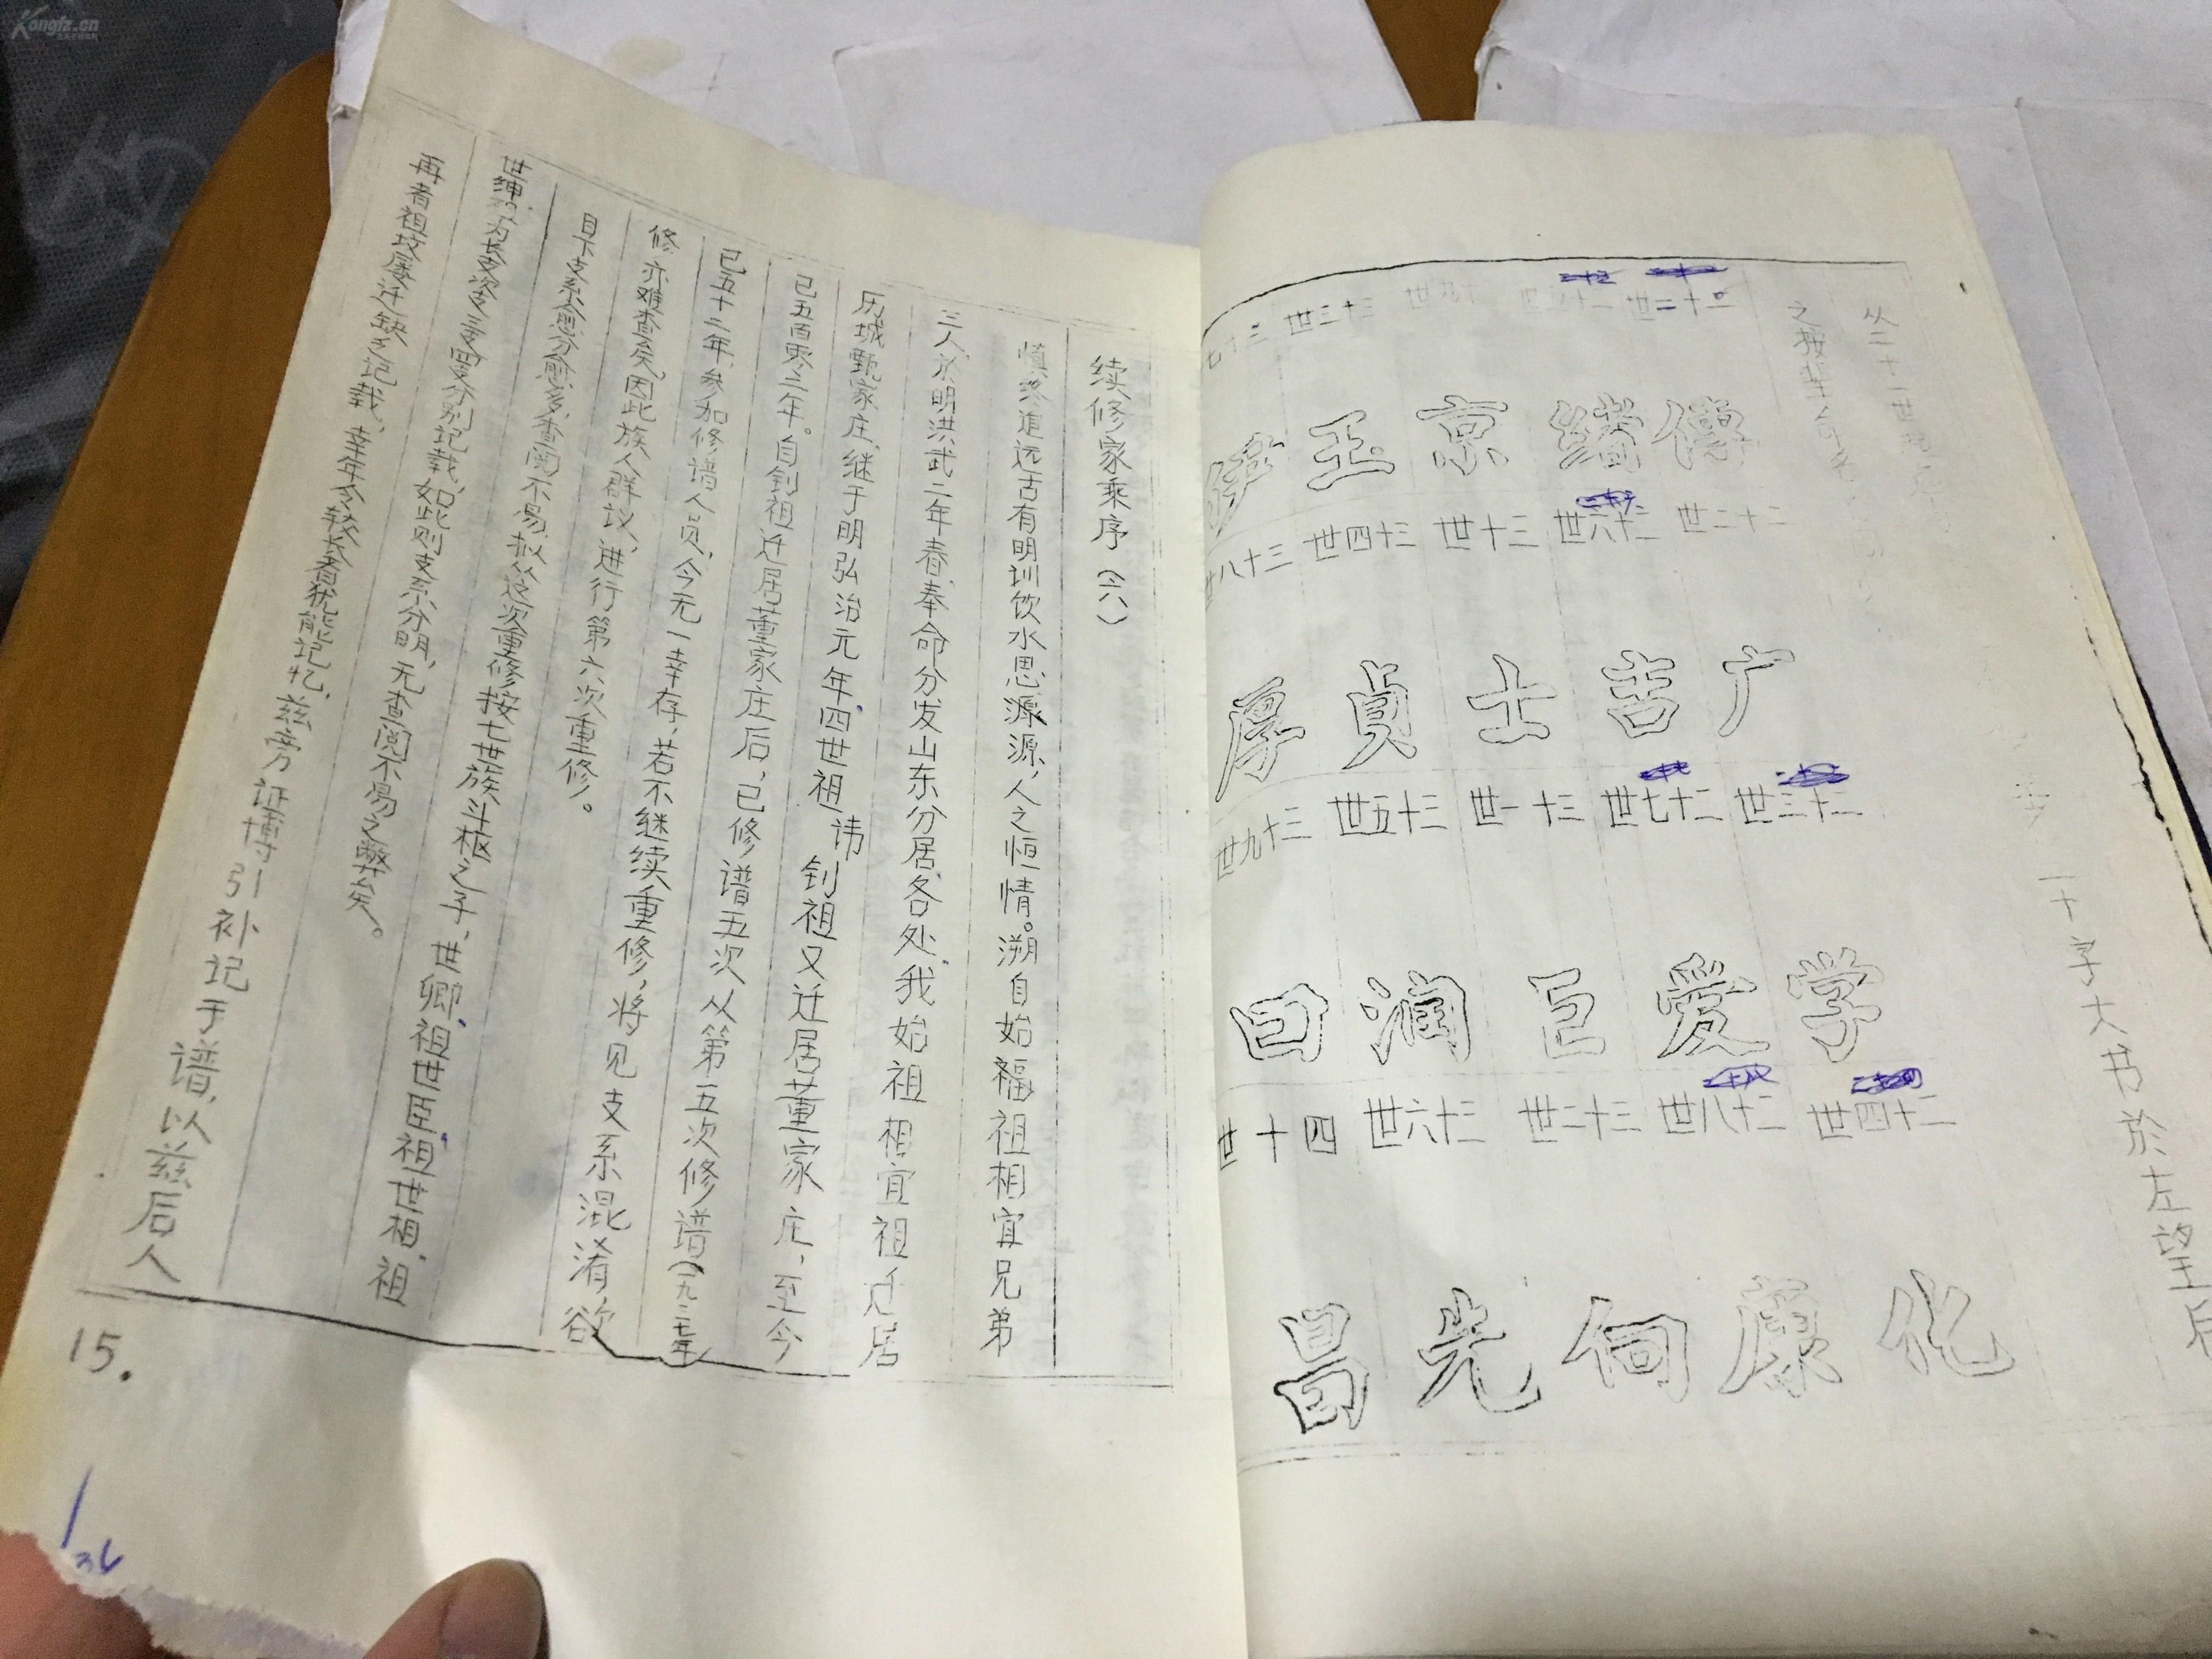 Kongfz.cn
续修家乘序（六）
慎终追远古有明训饮水思源源，人之恒情。溯自始福祖相宜兄弟
三人，於明洪武二年春奉命分发山东分居各处我始祖相宜祖迁居
历城甄家庄，继于明弘治元年四世祖讳钊祖又迁居董家庄，至今
已五百零三年。自钊祖迁居董家庄后，已修谱五次从第五次修谱（一九三七年
已五十二年，参加修谱人员，今无一幸存，若不继续重修，将见支系混淆欲
修亦难查矣。因此族人群议，进行第六次重修。
目下支系愈分愈多，查阅不易，拟从这次重修按七世族斗枢之子，世卿祖世臣祖世相祖
世绅祖为长支次支三支四支分别记载，如此则支系分明，无查阅不易之弊矣。
再者祖坟屡迁缺乏记载，幸年多较长者犹能记忆，兹旁证博引补记于谱，以兹后人
15.
从二十一世
之按辈命名
二十字大书於左望后
二十二世
二十六世
三十世
三十四世
三十八世
传
绪
京
玉
二十三世
二十七世
三十一世
三十五世
三十九世
广
吉
士
贞
厚
二十四世
二十八世
三十二世
三十六世
四十世
学
爱
巨
润
曰
化
康
向
光
昌